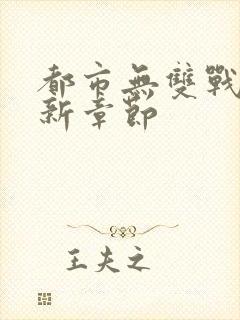 都市無雙戰
新章節
王夫之